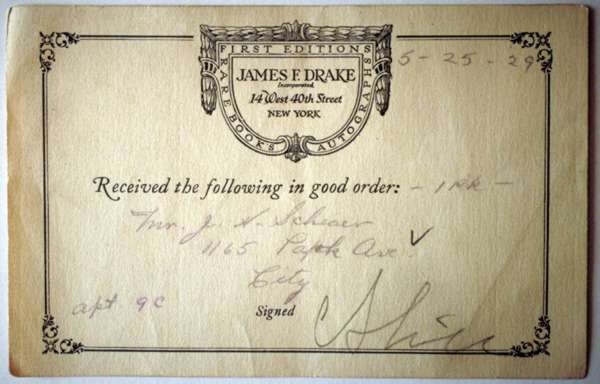 FIRST EDITIONS
RARE BOOKS
AUTOGRAPHS
JAMES F. DRAKE
Incorporated
14 West 40th Street
NEW YORK
5-25-29
Received the following in good order: - 1 PK -
Mr. J. H. Scheuer
1165 Park Ave
City
apt. 9C
Signed